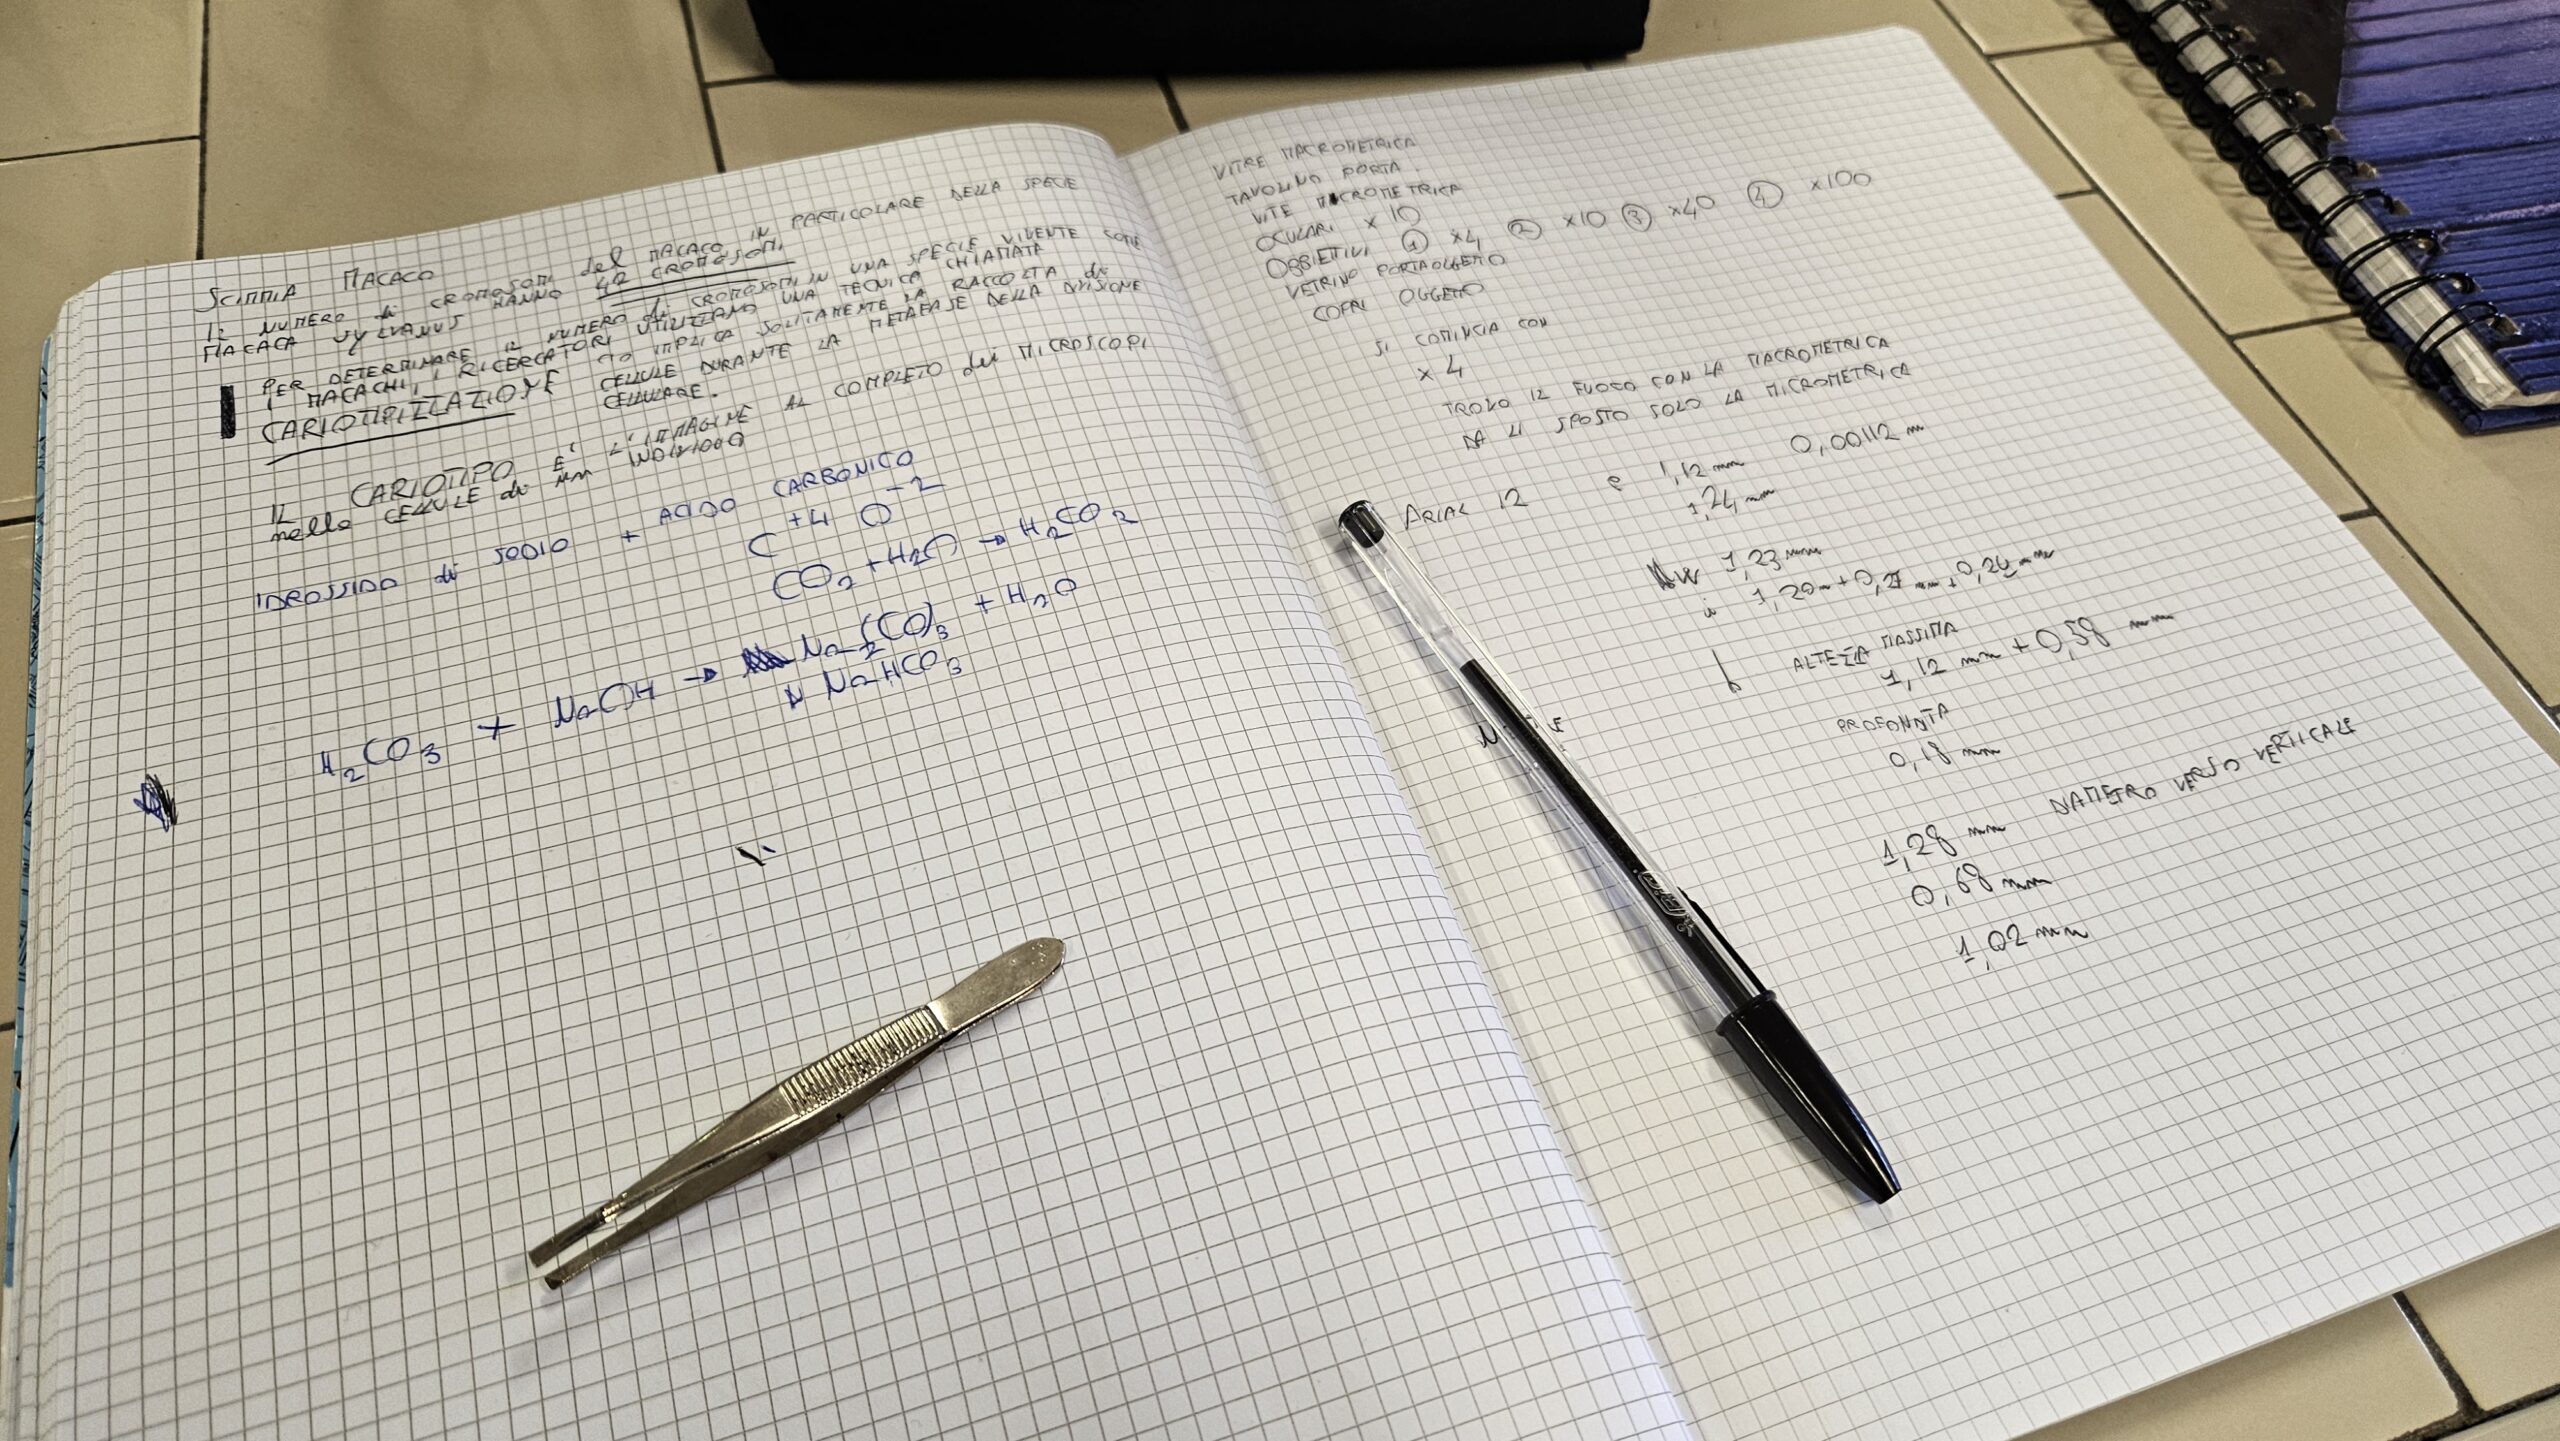 SCIMMIA MACACO
IL NUMERO di CROMOSOMI del MACACO IN PARTICOLARE DELLA SPECIE
MACACA SYLVANUS HANNO 42 CROMOSOMI
PER DETERMINARE IL NUMERO di CROMOSOMI IN UNA SPECIE VIVENTE COME
I MACACHI, I RICERCATORI UTILIZZANO UNA TECNICA CHIAMATA
CARIOTIPIZZAZIONE CIO IMPLICA SOLITAMENTE LA RACCOLTA di
CELLULE DURANTE LA METAFASE DELLA DIVISIONE
CELLULARE.
IL CARIOTIPO E' L'IMMAGINE AL COMPLETO dei MICROSCOPI
nelle CELLULE di un INDIVIDUO
IDROSSIDO di SODIO + ACIDO CARBONICO
C+4 O-2
CO2 + H2O → H2CO2
H2CO3 + NaOH → Na2(CO)3 + H2O
NaHCO3
VITRE MACROMETRICA
TAVOLINO PORTA
VITE MICROMETRICA
OCULARI × 10
OBBIETTIVI ① ×4 ② ×10 ③ ×40 ④ ×100
VETRINO PORTAOGGETTO
COPRI OGGETTO
SI COMINCIA CON
× 4
TROVO IL FUOCO CON LA MACROMETRICA
DA LI SPOSTO SOLO LA MICROMETRICA
ARIAL 12 e 1,12 mm 0,00112 m
1,24 mm
w 1,23 mm
i 1,20 m + 0,27 mm + 0,20 mm
ALTEZZA MASSIMA
1,12 mm + 0,58 mm
PROFONDITA
0,18 mm
1,28 mm DIAMETRO VERSO VERTICALE
0,68 mm
1,02 mm
BIC